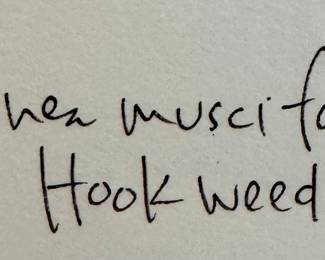 nea muscifo
Hookweed